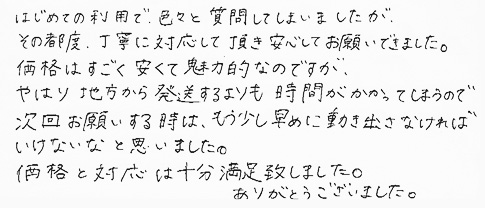 はじめての利用で、色々と質問してしまいましたが、
その都度、丁寧に対応して頂き安心してお願いできました。
価格はすごく安くて魅力的なのですが、
やはり地方から発送するよりも時間がかかってしまうので
次回お願いする時は、もう少し早めに動き出さなければ
いけないなと思いました。
価格と対応は十分満足致しました。
ありがとうございました。